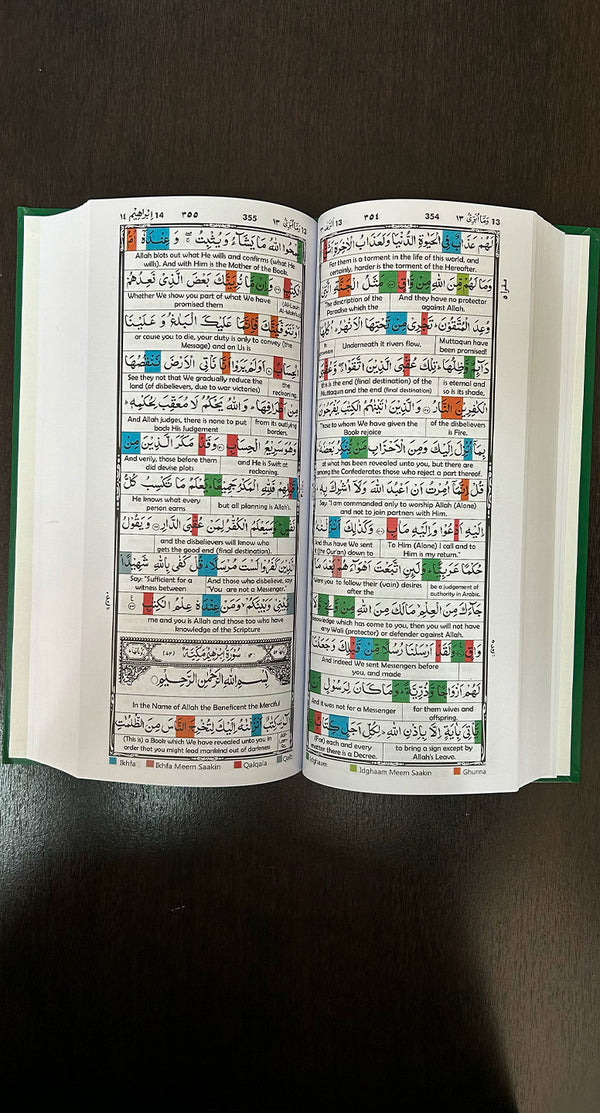 13 وَمَآ اُبَرِّئُ ١٣ 354 ٣٥٤ 13
لَهُمْ عَذَابٌ فِي الْحَيٰوةِ الدُّنْيَا وَلَعَذَابُ الْاٰخِرَةِ
For them is a torment in the life of this world, and
certainly, harder is the torment of the Hereafter.
وَمَا لَهُمْ مِّنَ اللّٰهِ مِنْ وَّاقٍ مَثَلُ الْجَنَّةِ الَّتِيْ
And they have no protector against Allah.
The description of the Paradise which the
وُعِدَ الْمُتَّقُوْنَ تَجْرِيْ مِنْ تَحْتِهَا الْاَنْهٰرُ اُكُلُهَا
Muttaqun have been promised!
Underneath it rivers flow,
دَآئِمٌ وَّظِلُّهَا تِلْكَ عُقْبَى الَّذِيْنَ اتَّقَوْا وَّعُقْبَى
is eternal and so is its shade,
this is the end (final destination) of the
Muttaqun and the end (final destination)
الْكٰفِرِيْنَ النَّارُ وَالَّذِيْنَ اٰتَيْنٰهُمُ الْكِتٰبَ يَفْرَحُوْنَ
of the disbelievers is Fire.
Those to whom We have given the Book rejoice
بِمَآ اُنْزِلَ اِلَيْكَ وَمِنَ الْاَحْزَابِ مَنْ يُّنْكِرُ بَعْضَهٗ
at what has been revealed unto you, but there are
among the Confederates those who reject a part thereof.
قُلْ اِنَّمَآ اُمِرْتُ اَنْ اَعْبُدَ اللّٰهَ وَلَآ اُشْرِكَ بِهٖ
Say: "I am commanded only to worship Allah (Alone)
and not to join partners with Him.
اِلَيْهِ اَدْعُوْا وَاِلَيْهِ مَاٰبِ وَكَذٰلِكَ اَنْزَلْنٰهُ
To Him (Alone) I call and to Him is my return."
And thus have We sent it (the Qur'an) down to
حُكْمًا عَرَبِيًّا وَلَئِنِ اتَّبَعْتَ اَهْوَآءَهُمْ بَعْدَ مَا
be a judgement of authority in Arabic.
Were you to follow their (vain) desires after the
جَآءَكَ مِنَ الْعِلْمِ مَا لَكَ مِنَ اللّٰهِ مِنْ وَّلِيٍّ وَّلَا
knowledge which has come to you, then you will not have
any Wali (protector) or defender against Allah.
وَاقٍ وَلَقَدْ اَرْسَلْنَا رُسُلًا مِّنْ قَبْلِكَ وَجَعَلْنَا
And indeed We sent Messengers before you, and made
لَهُمْ اَزْوَاجًا وَّذُرِّيَّةً وَمَا كَانَ لِرَسُوْلٍ اَنْ
for them wives and offspring.
And it was not for a Messenger
يَّاْتِيَ بِاٰيَةٍ اِلَّا بِاِذْنِ اللّٰهِ لِكُلِّ اَجَلٍ كِتَابٌ
to bring a sign except by Allah's Leave.
(For) each and every matter there is a Decree.
Idghaam Idghaam Meem Saakin Ghunna
14 اِبْرٰهِيْم ١٤ ٣٥٥ 355 وَمَآ اُبَرِّئُ ١٣ 13
يَمْحُوا اللّٰهُ مَا يَشَآءُ وَيُثْبِتُ وَعِنْدَهٗٓ اُمُّ
Allah blots out what He wills and confirms (what He
wills). And with Him is the Mother of the Book,
الْكِتٰبِ وَاِنْ مَّا نُرِيَنَّكَ بَعْضَ الَّذِيْ نَعِدُهُمْ
Whether We show you part of what We have
promised them
اَوْ نَتَوَفَّيَنَّكَ فَاِنَّمَا عَلَيْكَ الْبَلٰغُ وَعَلَيْنَا
or cause you to die, your duty is only to convey (the
Message) and on Us is
الْحِسَابُ اَوَلَمْ يَرَوْا اَنَّا نَاْتِي الْاَرْضَ نَنْقُصُهَا
the reckoning.
See they not that We gradually reduce the
land (of disbelievers, due to war victories)
مِنْ اَطْرَافِهَا وَاللّٰهُ يَحْكُمُ لَا مُعَقِّبَ لِحُكْمِهٖ
from its outlying borders.
And Allah judges, there is none to put
back His Judgement
وَهُوَ سَرِيْعُ الْحِسَابِ وَقَدْ مَكَرَ الَّذِيْنَ مِنْ
and He is Swift at reckoning.
And verily, those before them
did devise plots
قَبْلِهِمْ فَلِلّٰهِ الْمَكْرُ جَمِيْعًا يَعْلَمُ مَا تَكْسِبُ كُلُّ
but all planning is Allah's.
He knows what every person earns
نَفْسٍ وَسَيَعْلَمُ الْكُفّٰرُ لِمَنْ عُقْبَى الدَّارِ وَيَقُوْلُ
and the disbelievers will know who
gets the good end (final destination).
الَّذِيْنَ كَفَرُوْا لَسْتَ مُرْسَلًا قُلْ كَفٰى بِاللّٰهِ شَهِيْدًا
And those who disbelieve, say: "You are not a Messenger."
Say: "Sufficient for a witness between
بَيْنِيْ وَبَيْنَكُمْ وَمَنْ عِنْدَهٗ عِلْمُ الْكِتٰبِ
me and you is Allah and those too who have
knowledge of the Scripture
سُوْرَةُ اِبْرٰهِيْمَ مَكِّيَّةٌ
بِسْمِ اللّٰهِ الرَّحْمٰنِ الرَّحِيْمِ
In the Name of Allah the Beneficent the Merciful
الٓرٰ كِتٰبٌ اَنْزَلْنٰهُ اِلَيْكَ لِتُخْرِجَ النَّاسَ مِنَ الظُّلُمٰتِ
(This is) a Book which We have revealed unto you in
order that you might lead mankind out of darkness
Ikhfa Ikhfa Meem Saakin Qalqala